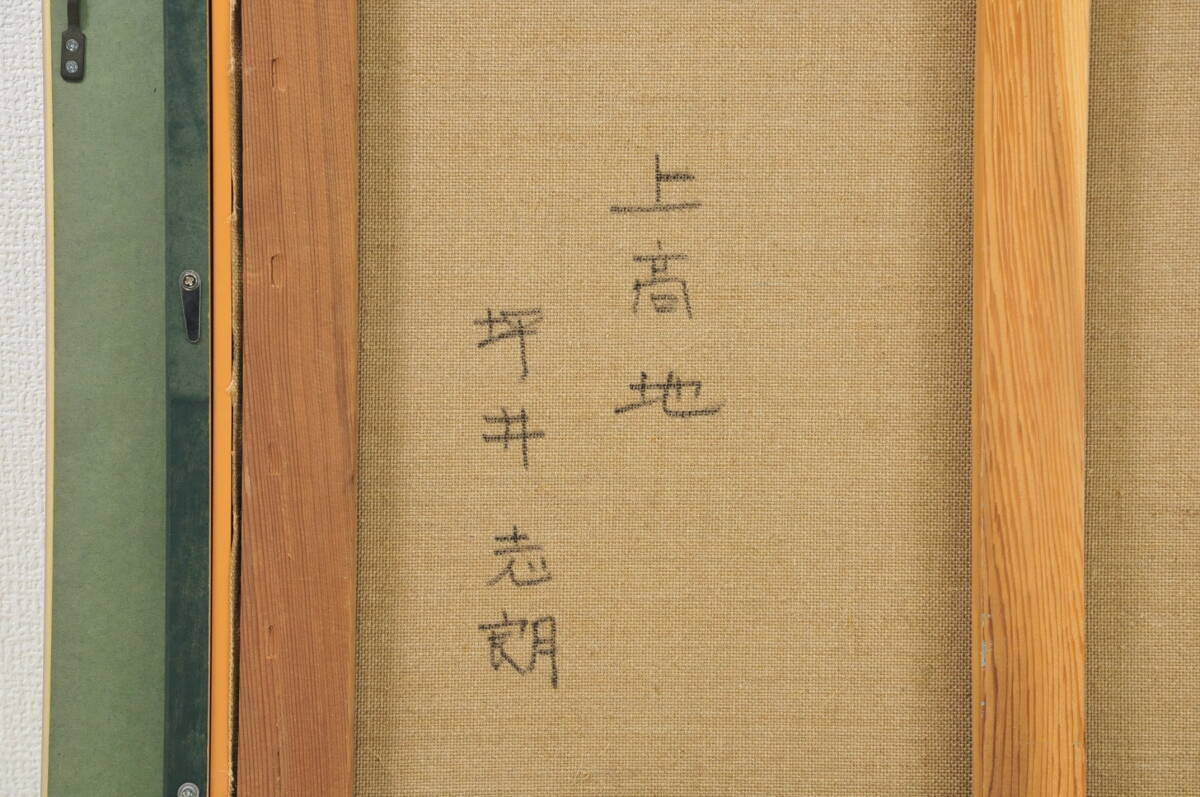 上高地
坪井志朗